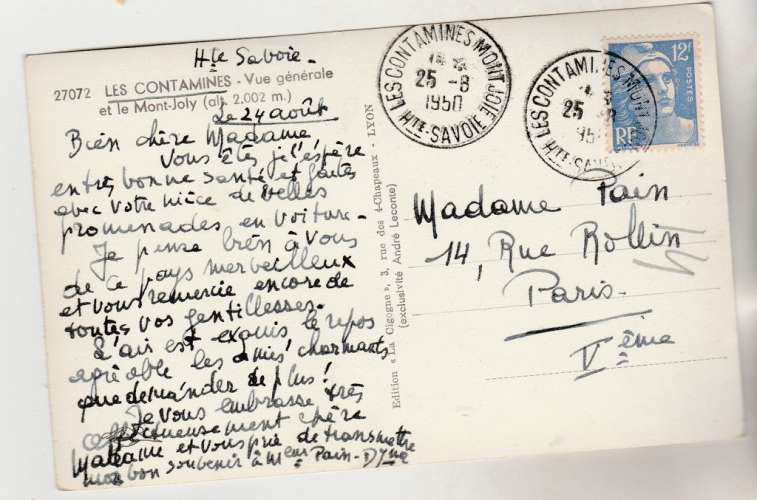 Hte Savoie -
27072 LES CONTAMINES - Vue générale
et le Mont-Joly (alt. 2.002 m.)
Le 24 août
Bien chère Madame
Vous êtes je l'espère
en très bonne santé et faites
avec votre nièce de belles
promenades en voiture -
Je pense bien à vous
de ce pays merveilleux
et vous remercie encore de
toutes vos gentillesses.
L'air est exquis le repos
agréable les amis charmants
que demander de plus!
Je vous embrasse très
affectueusement chère
Madame et vous prie de transmettre
mon bon souvenir à Meur Pain-Dyne
Edition « La Cigogne », 3, rue des 4-Chapeaux - LYON
(exclusivité André Leconte)
LES CONTAMINES MONTJOIE
25 -8
1950
HTE-SAVOIE
LES CONTAMINES MONT
25
HTE-SAV
12F
POSTES
RF
Madame Pain
14, Rue Rollin
Paris.
Vème